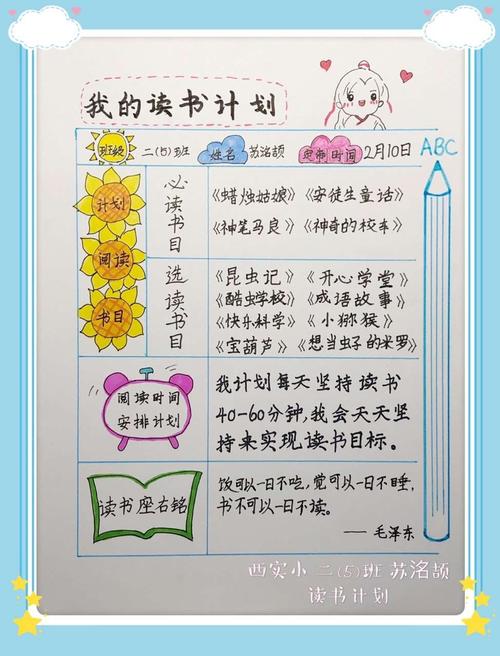 我的读书计划
班级 二(5)班 姓名 苏洺颉 定制时间 2月10日 ABC
计划
阅读
书目
必读书目
《蜡烛姑娘》《安徒生童话》
《神笔马良》《神奇的校车》
选读书目
《昆虫记》《开心学堂》
《酷虫学校》《成语故事》
《快乐科学》《小猕猴》
《宝葫芦》《想当虫子的米罗》
阅读时间
安排计划
我计划每天坚持读书
40-60分钟,我会天天坚
持来实现读书目标。
读书座右铭
饭可以一日不吃,觉可以一日不睡,
书不可以一日不读。
——毛泽东
西实小 二(5)班 苏洺颉
读书计划